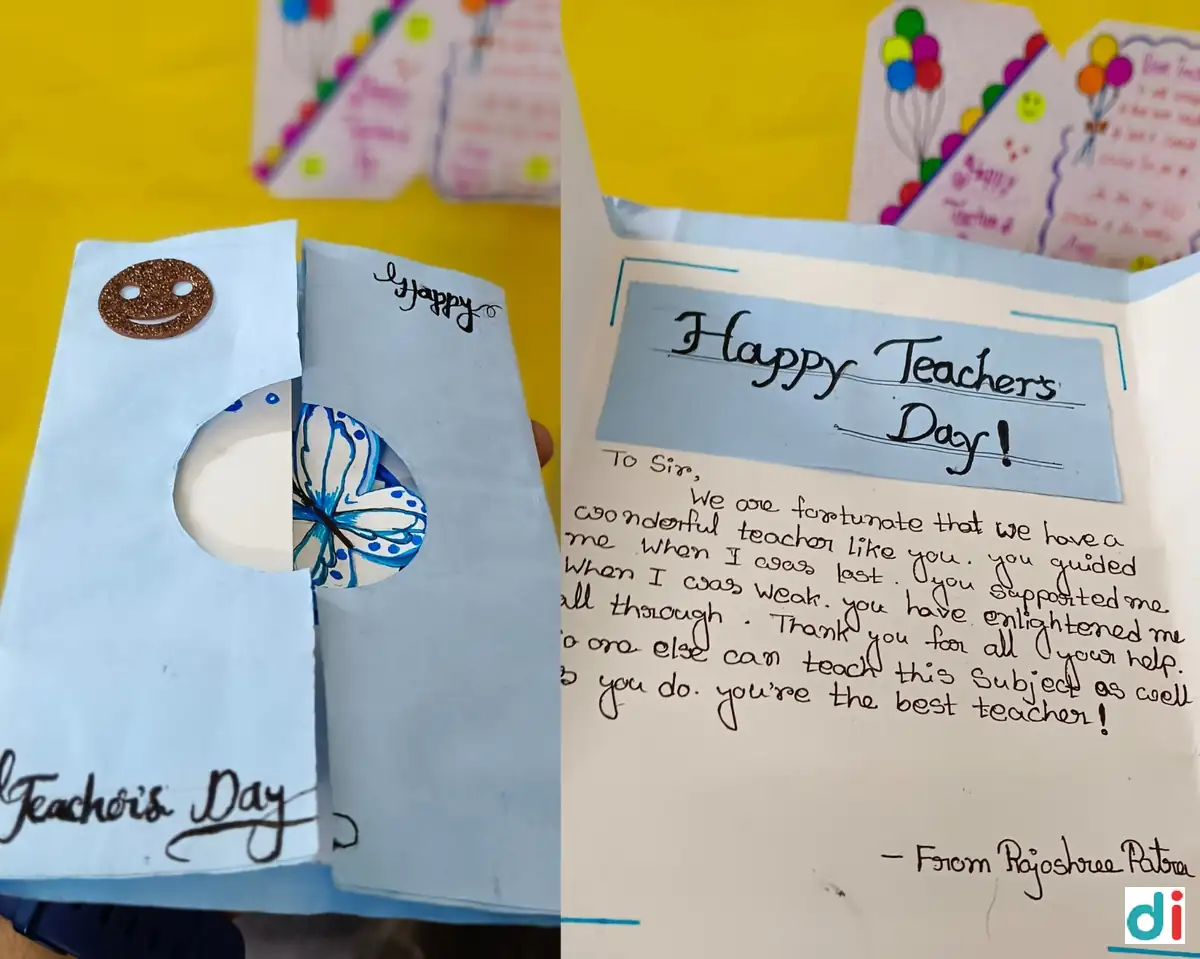 Happy
Teacher's Day
Happy
Happy Teacher's
Day!
To Sir,
We are fortunate that we have a
wonderful teacher like you. you guided
me when I was last. you supported me
When I was weak. you have enlightened me
all through. Thank you for all your help.
one else can teach this Subject as well
you do. you're the best teacher!
- From Rajoshree Patra
di